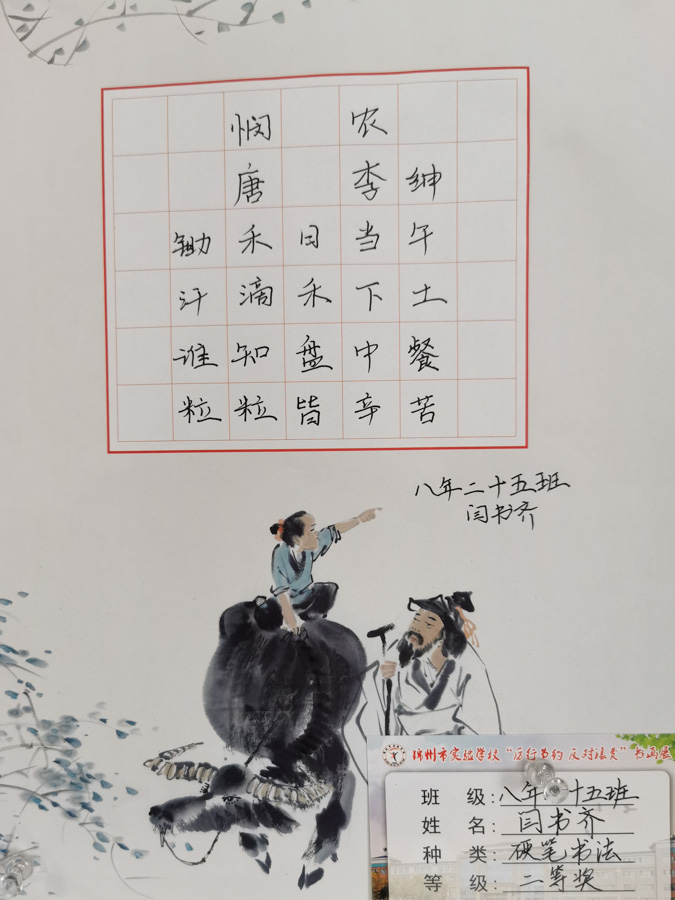 悯农
唐 李绅
锄禾日当午
汗滴禾下土
谁知盘中餐
粒粒皆辛苦
八年二十五班
闫书齐
锦州市实验学校“厉行节约 反对浪费”书画展
班 级:八年 十五班
姓 名:闫书齐
种 类:硬笔书法
等 级:二等奖